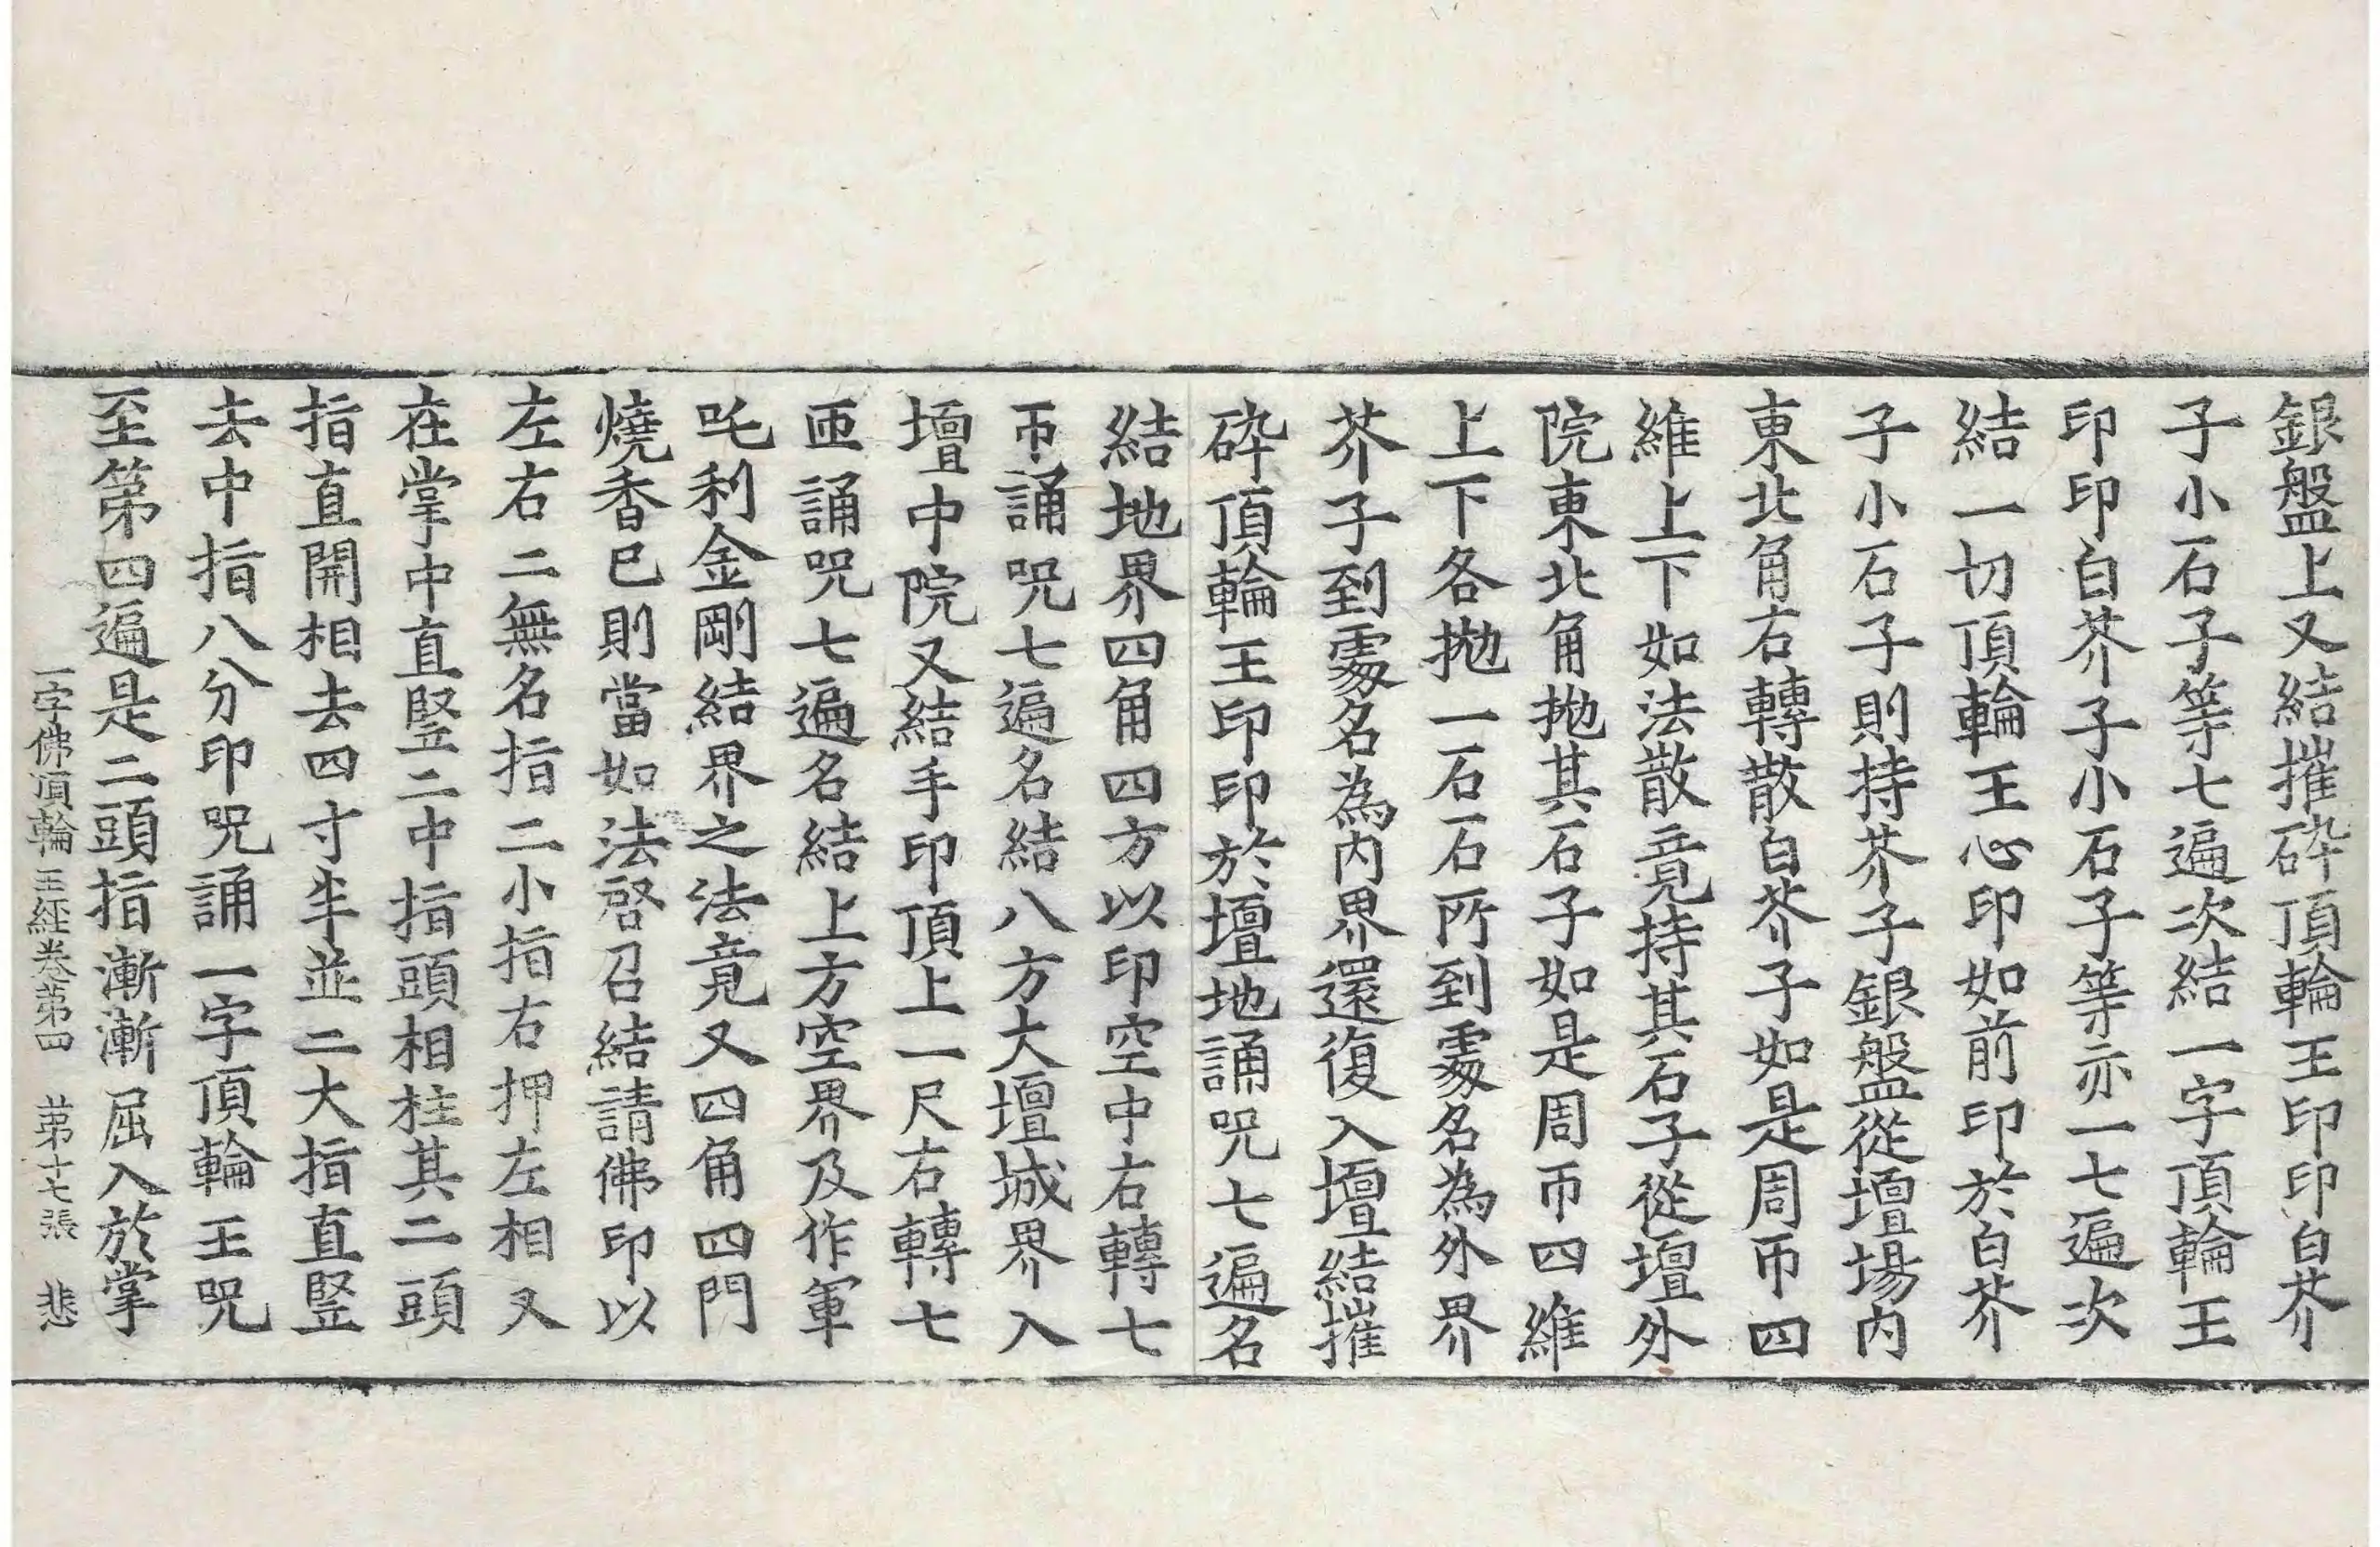 銀盤上又結摧碎頂輪王印印白芥
子小石子等七遍次結一字頂輪王
印印白芥子小石子等亦一七遍次
結一切頂輪王心印如前印於白芥
子小石子則持芥子銀盤從壇場内
東北角右轉散白芥子如是周帀四
維上下如法散竟持其石子從壇外
院東北角拋其石子如是周帀四維
上下各拋一石石所到䖏名為外界
芥子到䖏名為内界還復入壇結摧
碎頂輪王印印於壇地誦咒七遍名
結地界四角四方以印空中右轉七
帀誦咒七遍名結八方大壇城界入
壇中院又結手印頂上一尺右轉七
匝誦咒七遍名結上方空界及作軍
吒利金剛結界之法竟又四角四門
燒香已則當如法啓召結請佛印以
左右二無名指二小指右押左相叉
在掌中直豎二中指頭相柱其二頭
指直開相去四寸半並二大指直豎
去中指八分印咒誦一字頂輪王咒
至第四遍是二頭指漸漸屈入於掌
一字佛頂輪王経卷苐四　苐十七張　悲